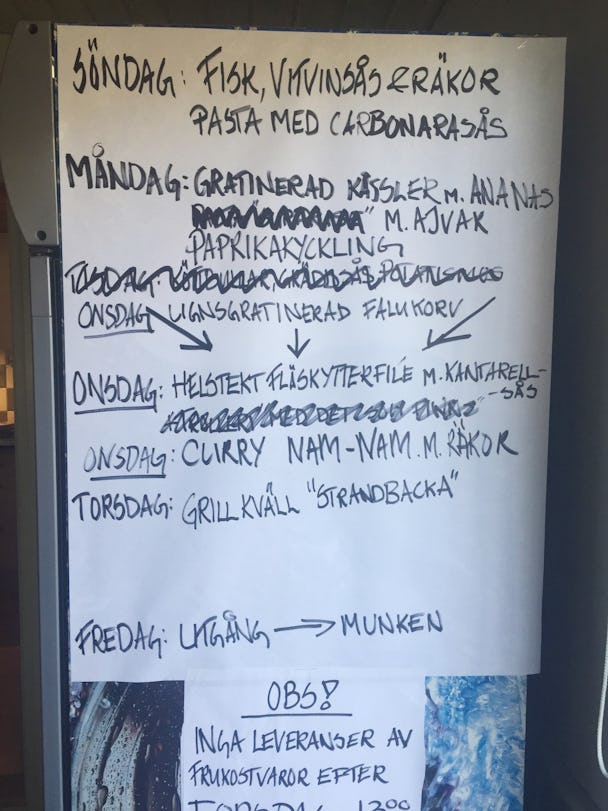 SÖNDAG: FISK, VITVINSÅS & RÄKOR
PASTA MED CARBONARASÅS
MÅNDAG: GRATINERAD KASSLER M. ANANAS
M. AJVAR
PAPRIKAKYCKLING
ONSDAG UGNSGRATINERAD FALUKORV
ONSDAG: HELSTEKT FLÄSKYTTERFILÉ M. KANTARELL-
-SÅS
ONSDAG: CURRY NAM-NAM M. RÄKOR
TORSDAG: GRILLKVÄLL "STRANDBACKA"
FREDAG: UTGÅNG → MUNKEN
OBS!
INGA LEVERANSER AV
FRUKOSTVAROR EFTER
TORSDAG 1200